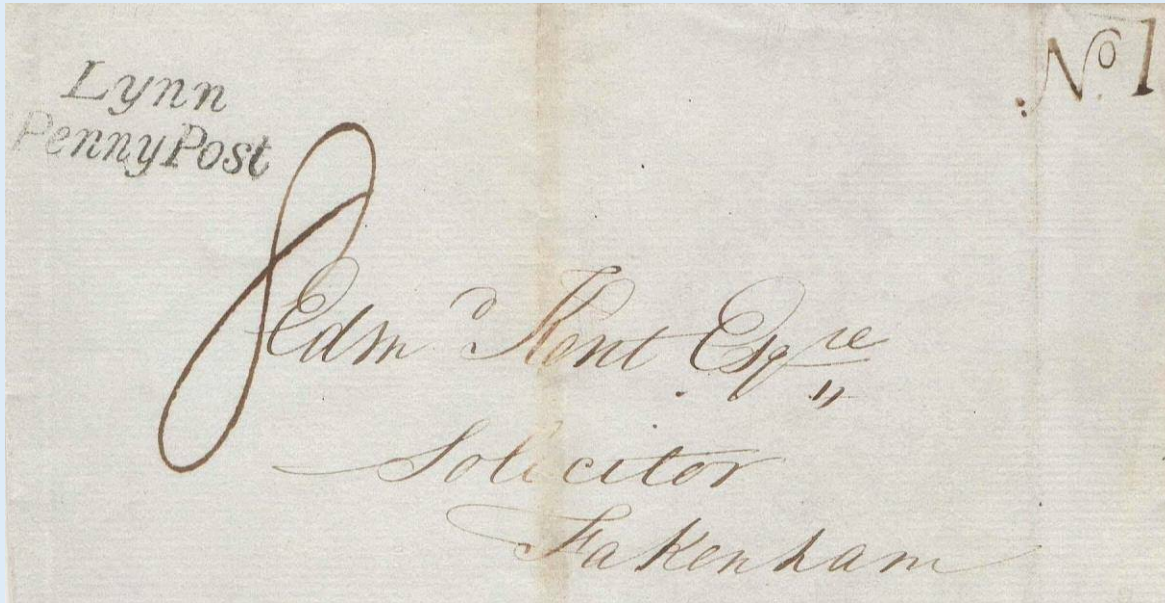 Lynn
Penny Post
No 1
8
Edmd Kent Esqre
Solicitor
Fakenham